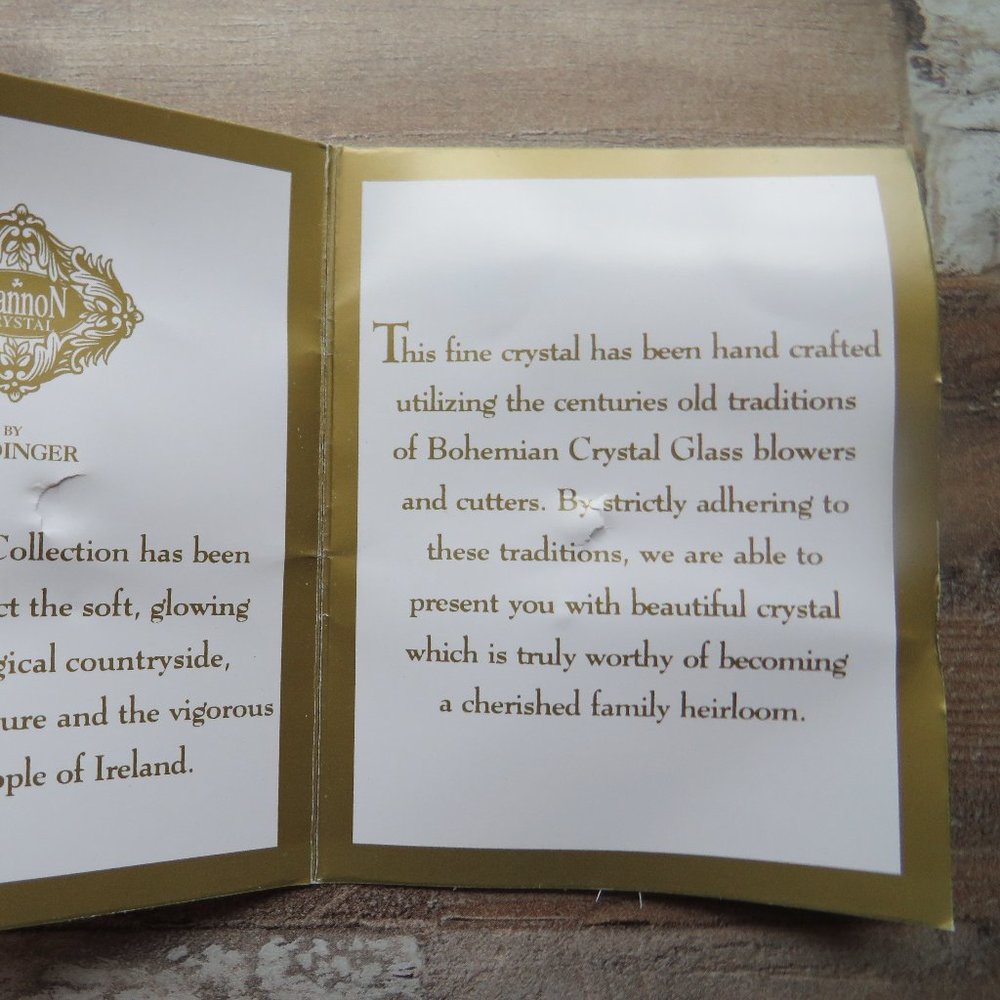 BY
Collection has been
the soft, glowing
countryside,
and the vigorous
of Ireland.
This fine crystal has been hand crafted
utilizing the centuries old traditions
of Bohemian Crystal Glass blowers
and cutters. By strictly adhering to
these traditions, we are able to
present you with beautiful crystal
which is truly worthy of becoming
a cherished family heirloom.